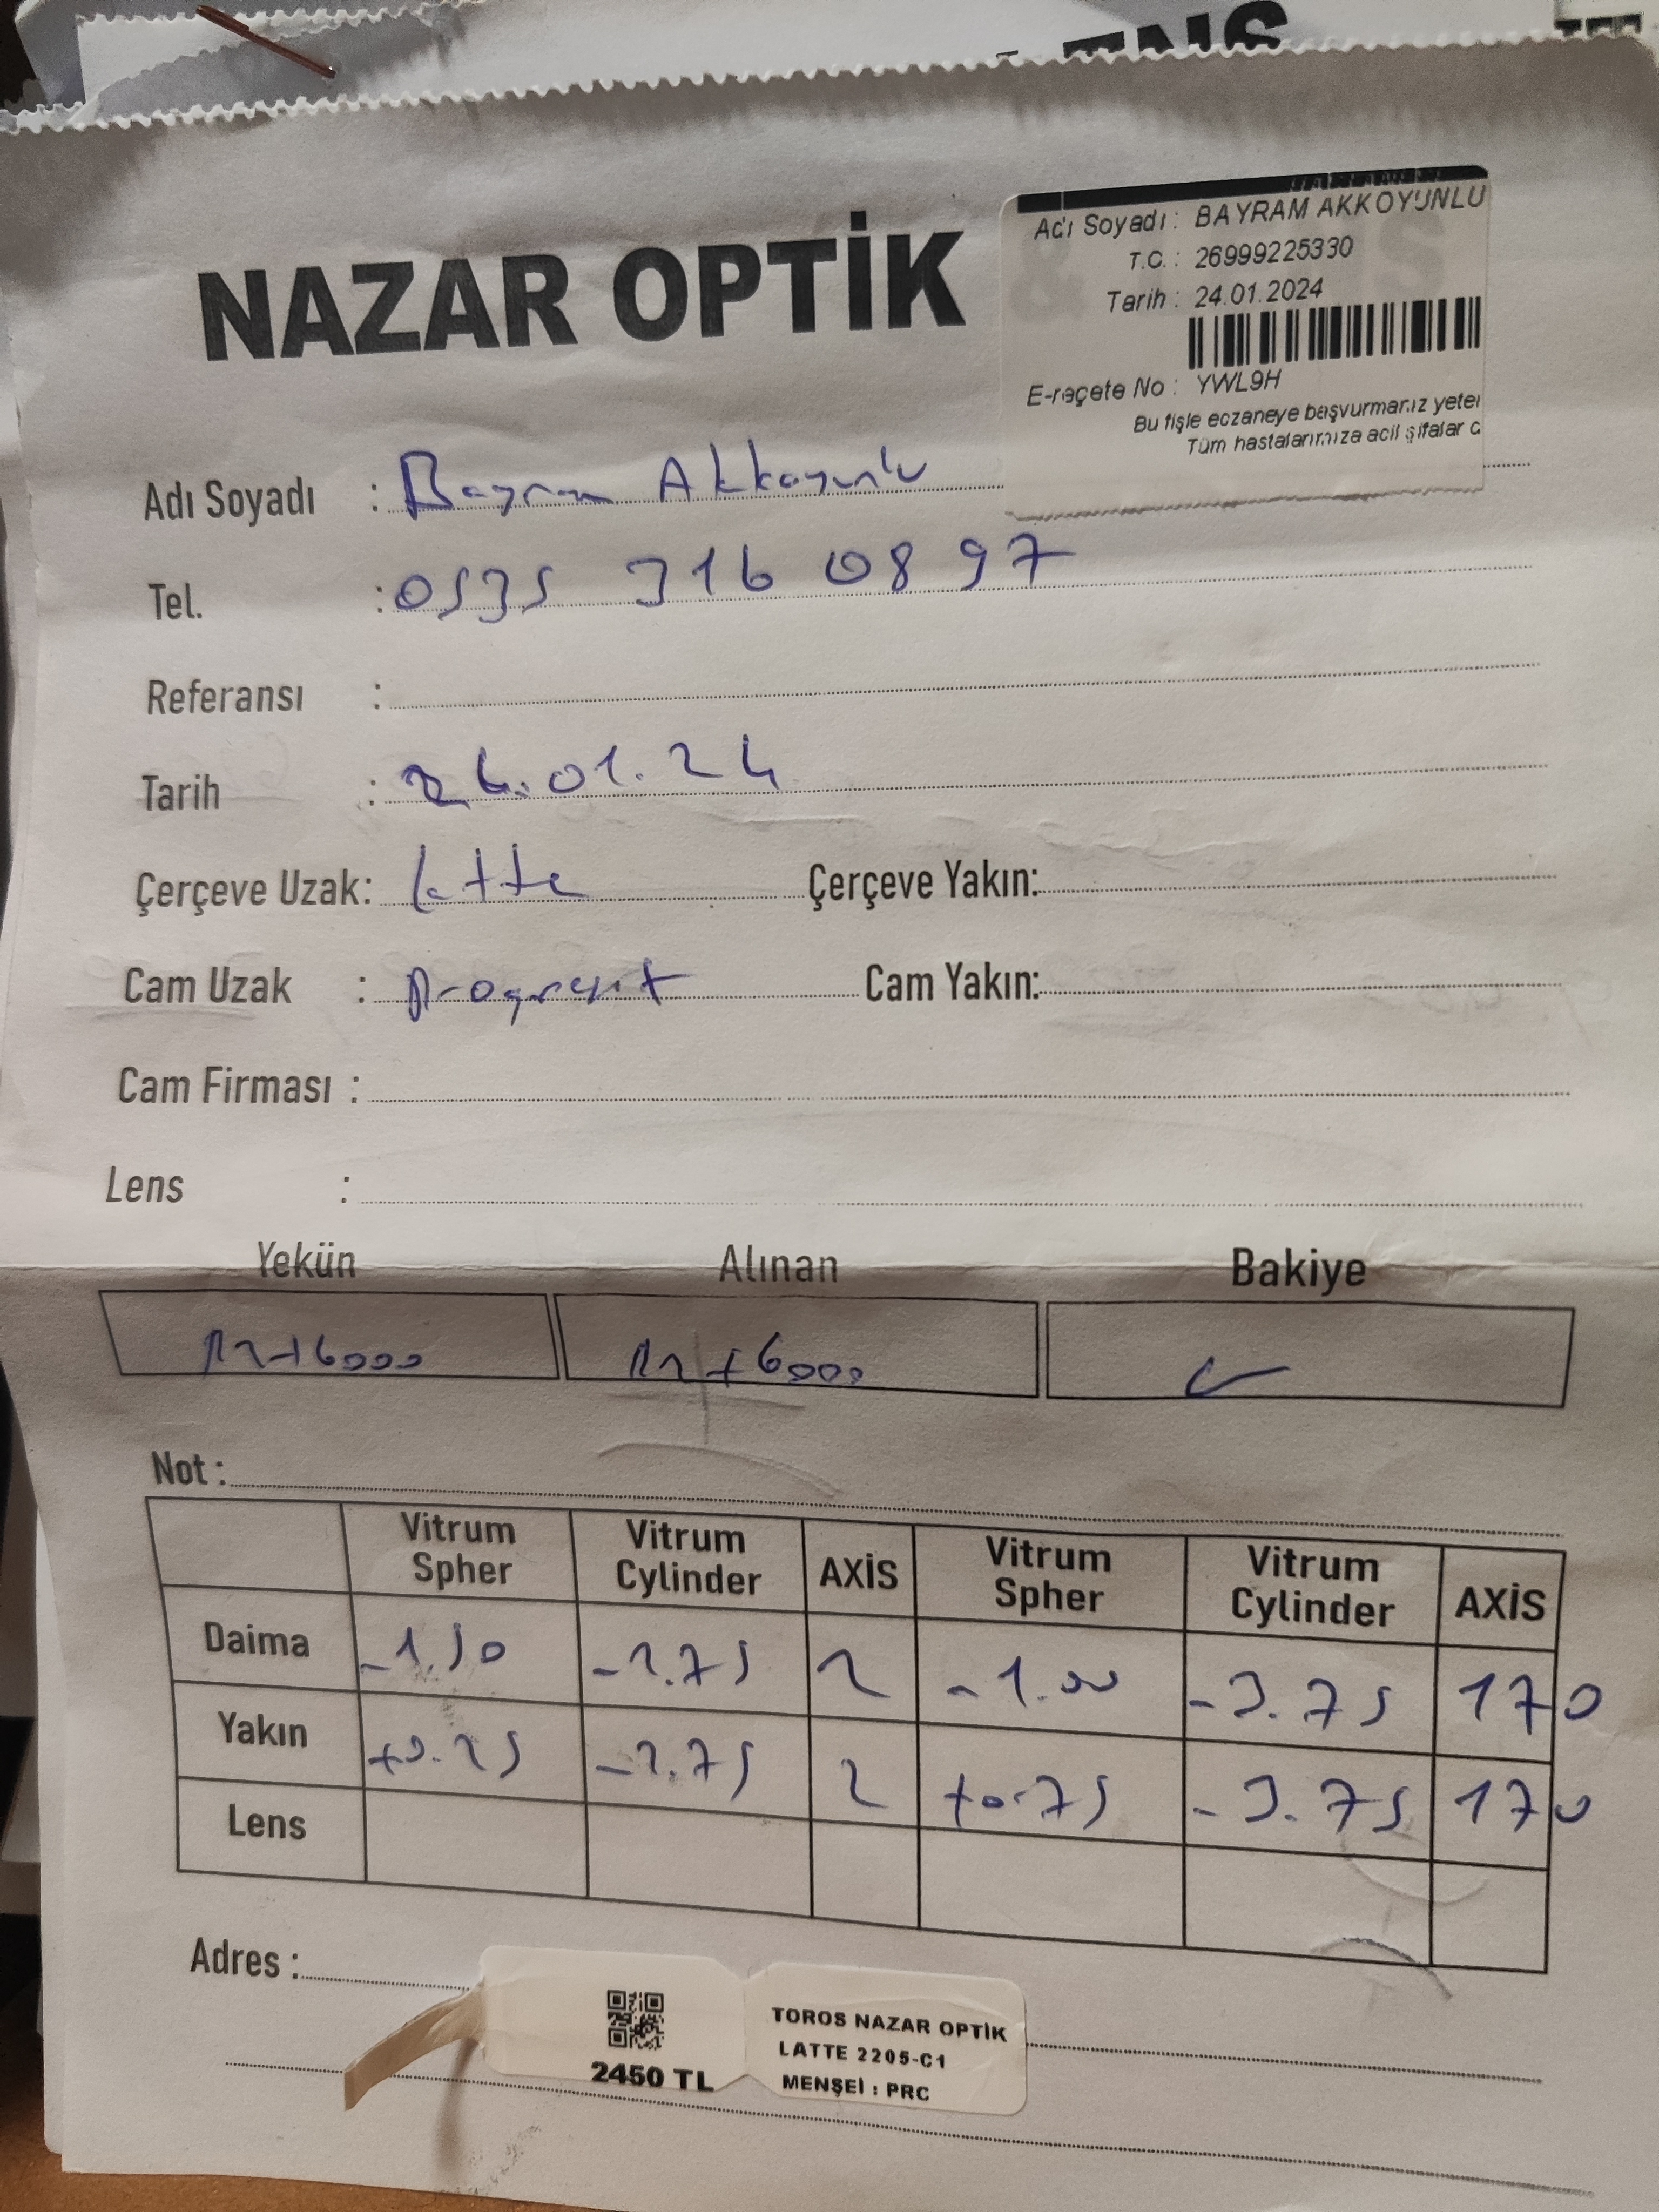 NAZAR OPTİK
Adı Soyadı : BAYRAM AKKOYUNLU
T.C. : 26999225330
Tarih : 24.01.2024
E-reçete No : YWL9H
Bu fişle eczaneye başvurmanız yeter
Tüm hastalarımıza acil şifalar d
Adı Soyadı : Bayram Akkoyunlu
Tel. : 0535 316 08 97
Referansı :
Tarih : 24.01.24
Çerçeve Uzak: Latte Çerçeve Yakın:
Cam Uzak : Progresif Cam Yakın:
Cam Firması :
Lens :
Yekün Alınan Bakiye
+6000 +6000
Not :
Vitrum Spher Vitrum Cylinder AXİS Vitrum Spher Vitrum Cylinder AXİS
Daima -1.50 -2.75 2 -1.00 -3.75 170
Yakın +0.25 -2.75 2 +0.75 -3.75 170
Lens
Adres :
2450 TL
TOROS NAZAR OPTİK
LATTE 2205-C1
MENŞEİ : PRC